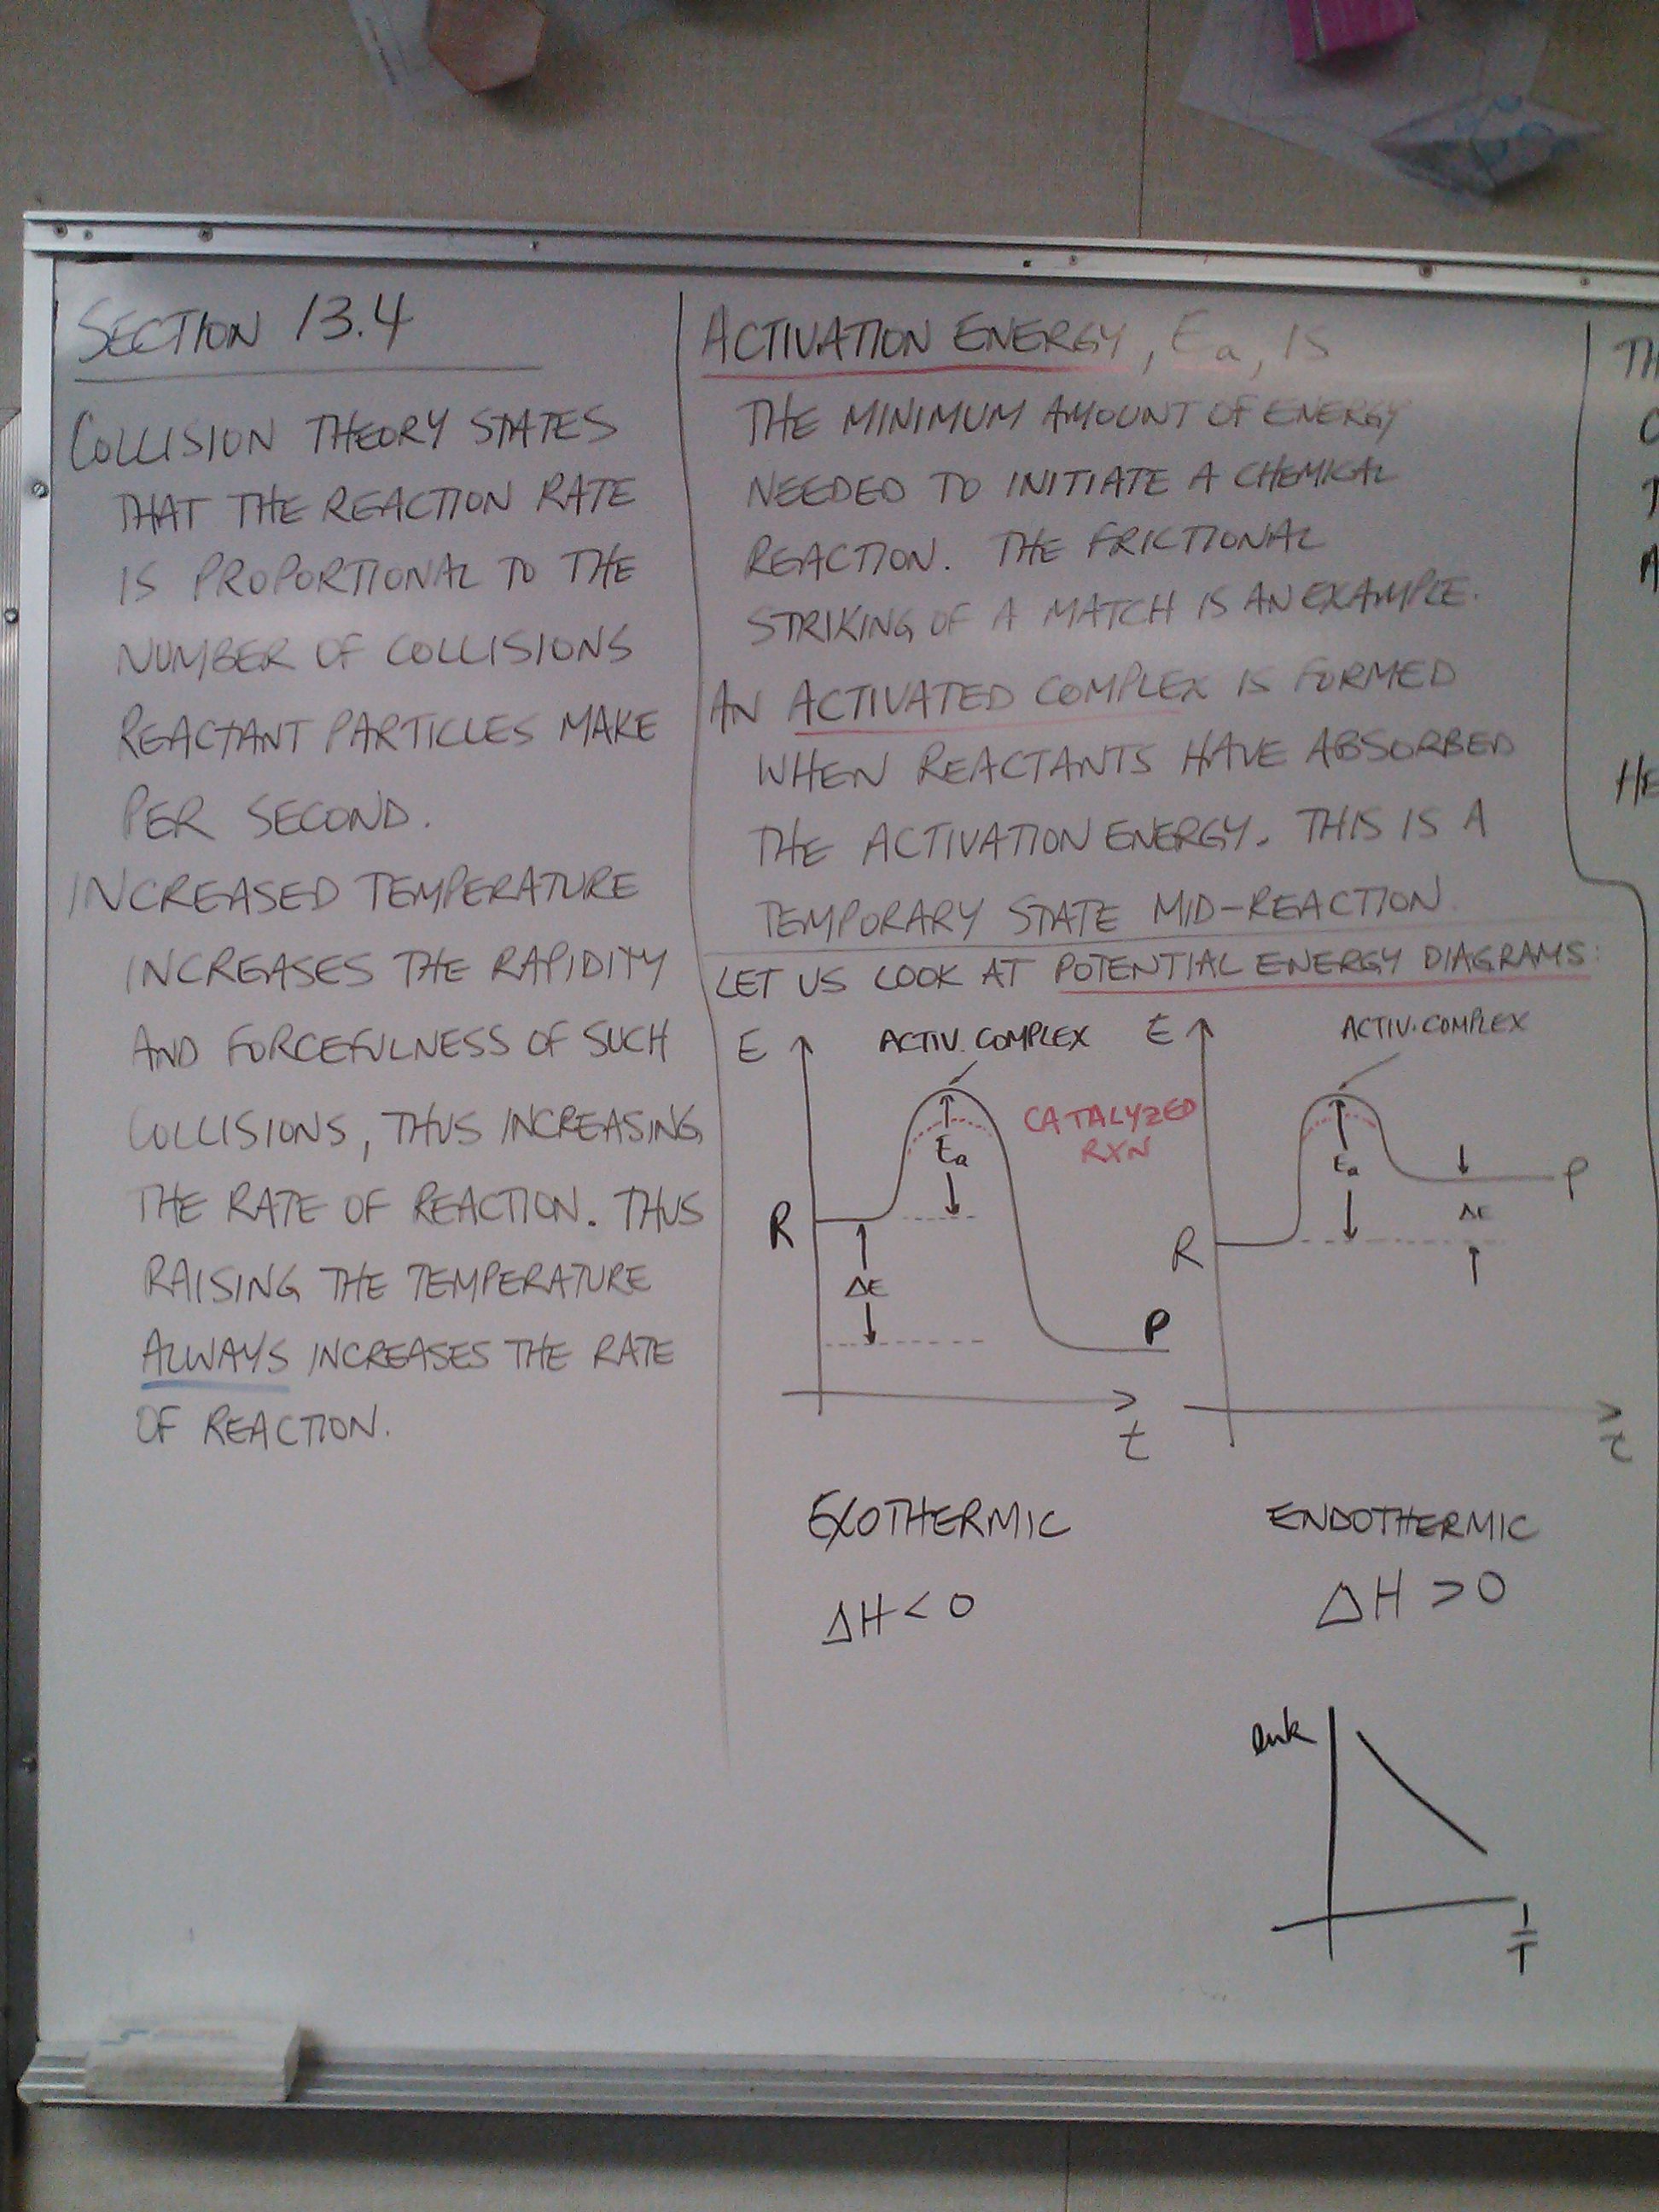 SECTION 13.4
COLLISION THEORY STATES
THAT THE REACTION RATE
IS PROPORTIONAL TO THE
NUMBER OF COLLISIONS
REACTANT PARTICLES MAKE
PER SECOND.
INCREASED TEMPERATURE
INCREASES THE RAPIDITY
AND FORCEFULNESS OF SUCH
COLLISIONS, THUS INCREASING
THE RATE OF REACTION. THUS
RAISING THE TEMPERATURE
ALWAYS INCREASES THE RATE
OF REACTION.
ACTIVATION ENERGY, Ea, IS
THE MINIMUM AMOUNT OF ENERGY
NEEDED TO INITIATE A CHEMICAL
REACTION. THE FRICTIONAL
STRIKING OF A MATCH IS AN EXAMPLE.
AN ACTIVATED COMPLEX IS FORMED
WHEN REACTANTS HAVE ABSORBED
THE ACTIVATION ENERGY. THIS IS A
TEMPORARY STATE MID-REACTION.
LET US LOOK AT POTENTIAL ENERGY DIAGRAMS:
E
ACTIV. COMPLEX
CATALYZED
RXN
Ea
R
ΔE
P
t
EXOTHERMIC
ΔH < 0
E
ACTIV. COMPLEX
Ea
P
ΔE
R
t
ENDOTHERMIC
ΔH > 0
lnk
1/T
TH
HE